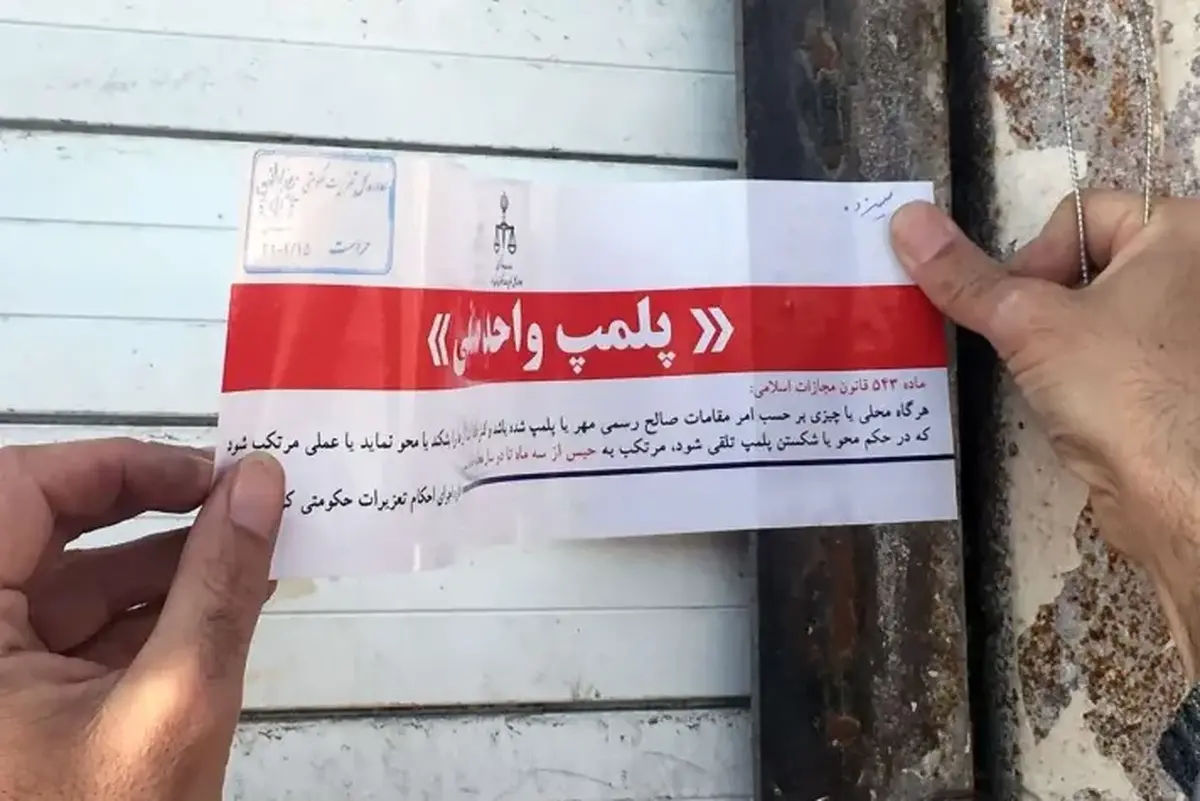 سیزده
حراست
« پلمپ واحد صنفی »
ماده ۵۴۳ قانون مجازات اسلامی:
هرگاه محلی یا چیزی بر حسب امر مقامات صالح رسمی مهر یا پلمپ شده باشد و بشکند یا محو نماید یا عملی مرتکب شود
که در حکم محو یا شکستن پلمپ تلقی شود، مرتکب به حبس از سه ماه تا دو سال
اجرای احکام تعزیرات حکومتی